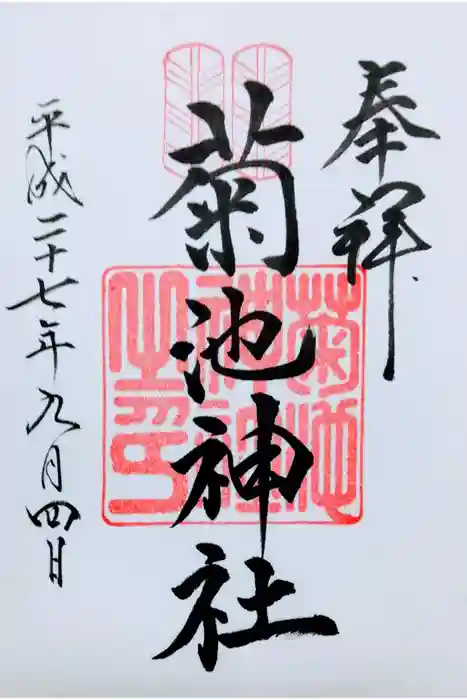 奉拝
菊池神社
菊池神社之印
平成二十七年九月四日